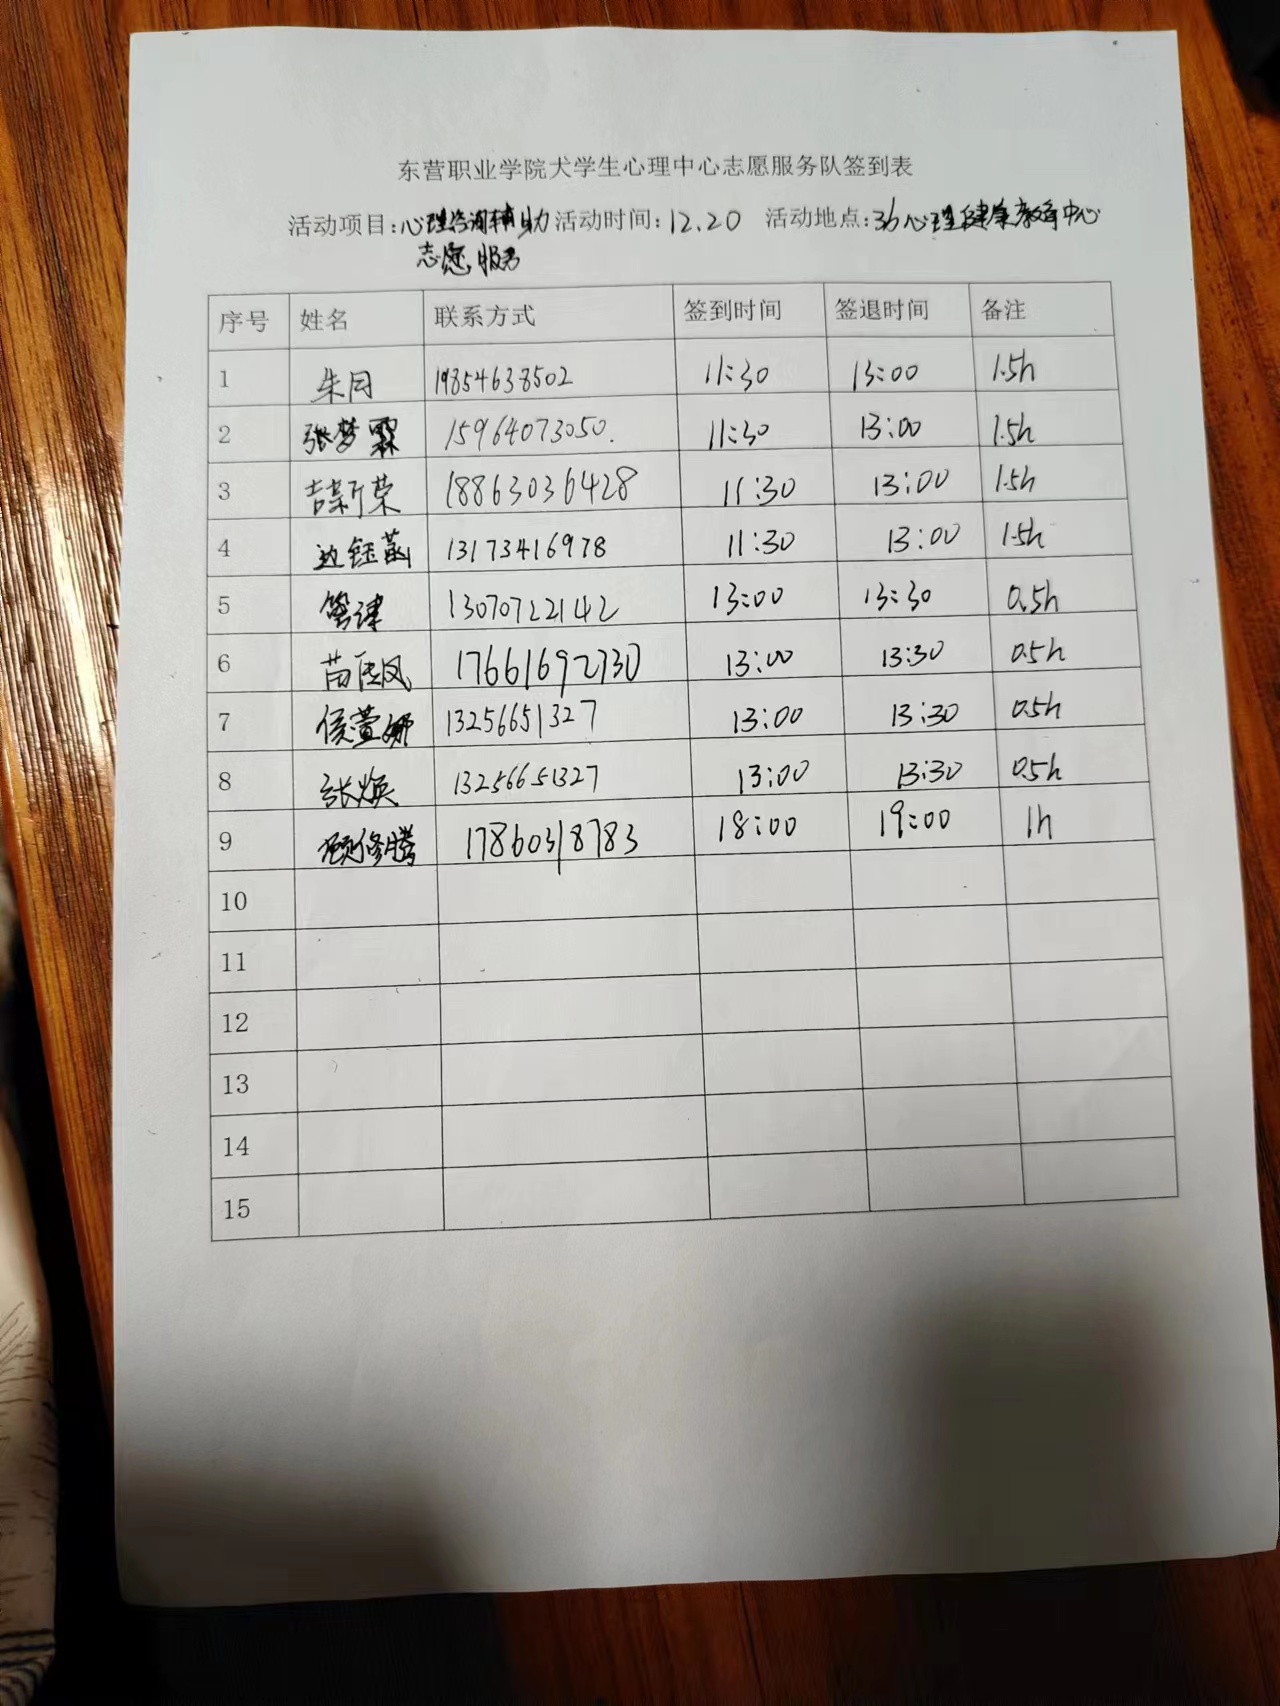 东营职业学院大学生心理中心志愿服务队签到表
活动项目:心理咨询辅助 活动时间:12.20 活动地点:36心理健康教育中心
志愿服务
序号 姓名 联系方式 签到时间 签退时间 备注
1 朱月 19854638502 11:30 13:00 1.5h
2 张梦霖 15964073050. 11:30 13:00 1.5h
3 吉新荣 18863036428 11:30 13:00 1.5h
4 边钰菡 13173416978 11:30 13:00 1.5h
5 管津 13070722142 13:00 13:30 0.5h
6 苗凤 17661692730 13:00 13:30 0.5h
7 侯萱娜 13256651327 13:00 13:30 0.5h
8 张焕 13256651327 13:00 13:30 0.5h
9 顾修腾 17860318783 18:00 19:00 1h
10
11
12
13
14
15